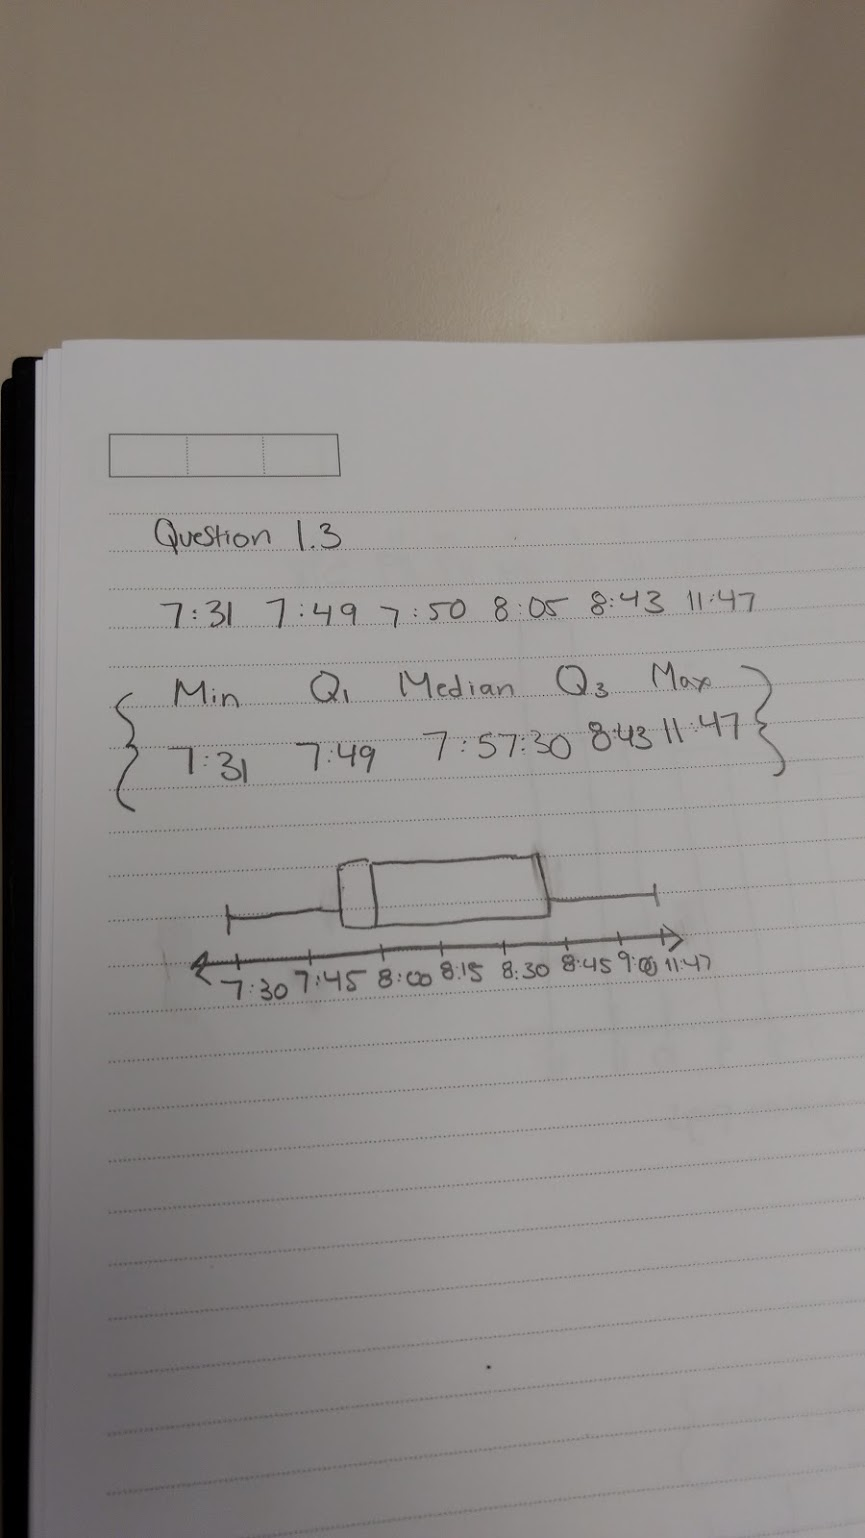 Question 1.3
7:31 7:49 7:50 8:05 8:43 11:47
Min Q1 Median Q3 Max
7:31 7:49 7:57:30 8:43 11:47
7:30 7:45 8:00 8:15 8:30 8:45 9:00 11:47